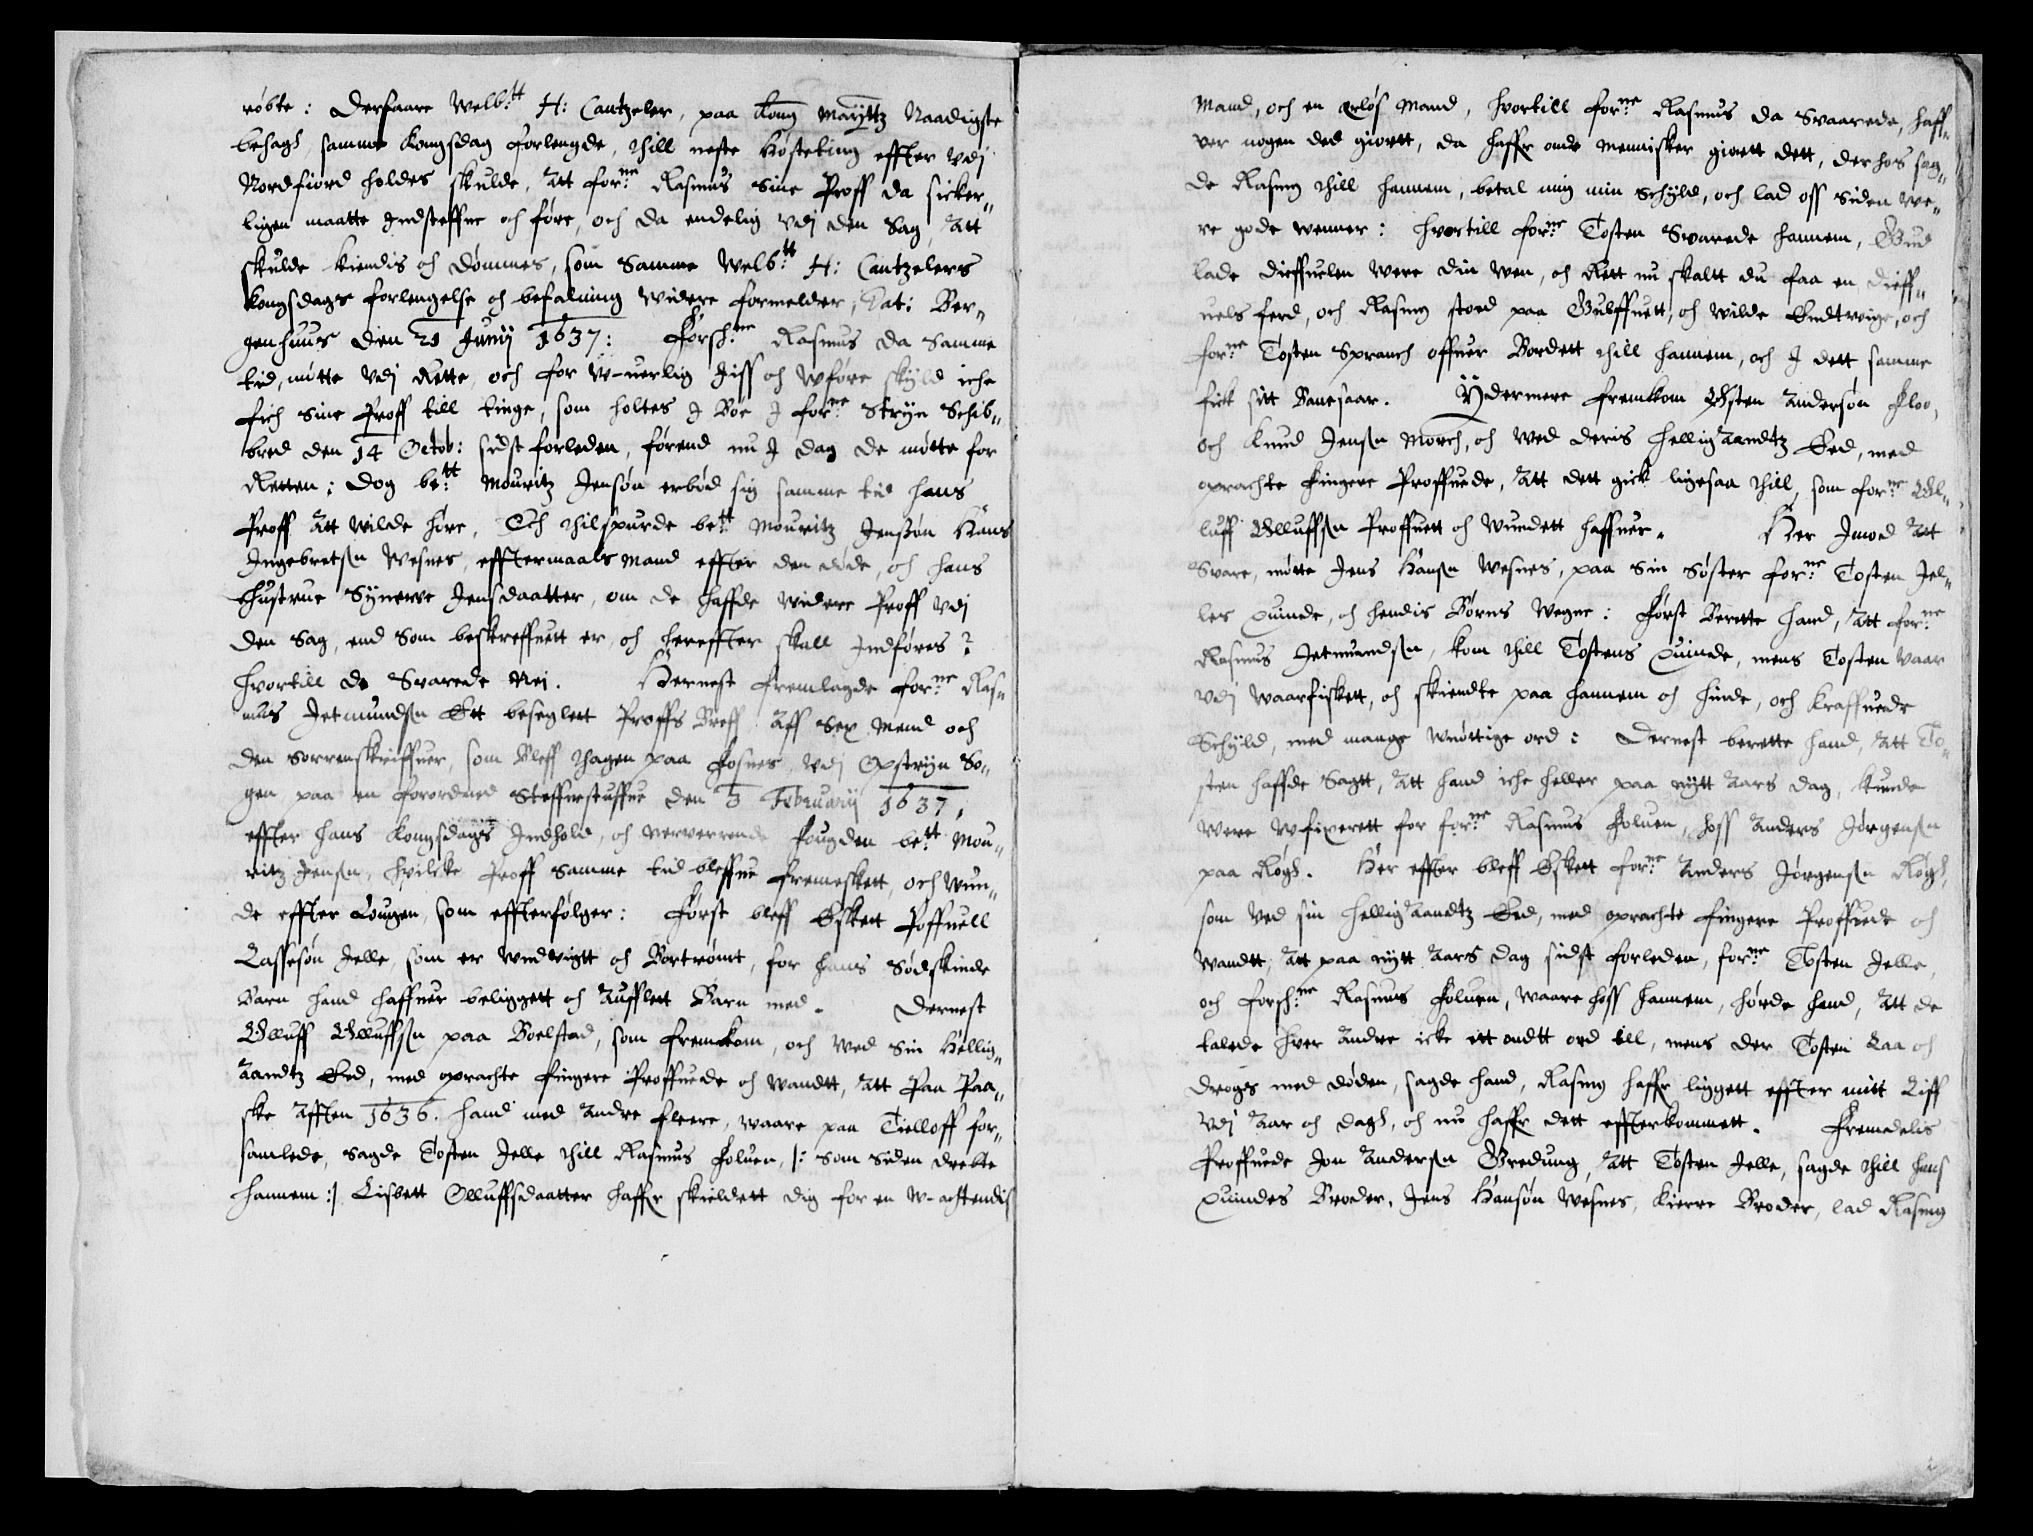 röbte: Derfaare Welb:tt H: Cantzeler, paa Kong Mayttz Naadigste
behagh, samme Kongsdag forlengde, thill neste Hösteting effter vdj
Nordfiord holdes skulde, att forne Rasmus Sine Proff da sicker,,
ligen maatte Indsteffne och före, och da endelig vdj den Sag, att
skulde kiendis och dömmes, som Samme Welb:tt H: Cantzelers
Kongsdags forlengelse och befalning widere formelder, Dat: Ber,,
genhuus den 21 Junij 1637: Forsch:ne Rasmus da Samme
tid, mötte vdj Rette, och for w-uerlig Jiss och wföre skyld iche
fich sine Proff till tinge, som holtes J Böe J forne Stryn Schib,,
bred den 14 Octob: sidst forleden, förend nu J dag de mötte for
Retten; Dog be:tt Mouritz Jensön erböd sig samme tid hans
Proff att wilde höre, Och thilspurde be:tt Mouritz Jensön Hans
Ingebretsn Wesnes, efftermaals mand effter den döde, och hans
hustrue Synerve Jensdaatter, om de haffde widere Proff vdj
den Sag, end Som beskreffuett er, och hereffter skall Indföres?
hvortill de Svarede Nei. Hernest fremlagde forne Ras,,
mus Jetmundsn Ett beseglett Proffs Breff aff Sex Mend och
den Sorrenskriffuer, som bleff thagen paa Fosnes, vdj Opstryn So,,
gen paa en forordned Steffnestuffne den 3 Februarij 1637,
effter hans Kongsdags Indhold, och nerverrende Fougden be:tt Mou,,
ritz Jensn, hvilcke Proff Samme tid bleffue fremeskett, och wun,,
de effter Lougen, som effterfölger: Först bleff Eskett Poffuell
Lassesön Jelle, som er wndvigtt och Bortrömt, for hans Södskinde
Barn hand haffuer beliggett och aufflett Barn med. Dernest
Olluff Olluffsn paa Boelstad, som fremkom, och wed Sin Hellig,,
aandtz Eed, med oprachte fingere Proffuede och Wandtt, att Paa Paa,,
ske Afften 1636. hand med andre fleere, waare paa Tielloff for,,
samlede, Sagde Tosten Jelle thill Rasmus Foluen, |: Som Siden drebte
hannem :| Lisbett Olluffsdaatter haffr skieldett dig for en w-achtendis
Mand, och en ærlös Mand, hvortill forne Rasmus da Svaarede, haff,,
uer nogen ded giortt, da haffr onde Mennisker giortt dett, der hos sag,,
de Rasmus thill hannem, betal mig min Schyld, och lad oss siden we,,
re gode wenner: hvortill forne Tosten Svarede hannem, Gud
lade dieffuelen were din wen, och Rett nu skaltt du faa en dieff,,
uels ferd, och Rasmus stoed paa Gulffuett, och wilde Endtvige, och
forne Tosten Spranch offuer Bordett thill hannem, och J dett samme
fick sitt Banesaar. Ydermere fremkom Østen Andersön Floo,
och Knud Jensn Morch, och wed deris hellig Aandtz Eed, med
oprachte Fingere Proffuede, Att dett gick ligesaa thill, som forne Ol,,
luff Olluffsn Proffuett och Wundett haffuer. Her Jmod att
Svare, mötte Jens Hansn Wesnes, paa Sin Söster forne Tosten Jel,,
les quinde, och hendis Börns Wegne: Först Berette hand, att forne
Rasmus Jetmundsn, kom thill Tostens quinde, mens Tosten Waar
vdj Waarfiskett, och skiendte paa hannem och hinde, och Kraffuede
Schyld, med mange wnöttige ord: Dernest berette hand, att To,,
sten haffde Sagtt, att hand iche heller paa nytt Aars dag, kunde
were wfixerett for forne Rasmus Foluen, hoss Anders Jörgensn
paa Rögh. Her effter bleff Eskett forne Anders Jörgensn Rögh,
som wed sin hellig aandtz Eed, med oprachte fingere Proffuede och
Wandtt, att paa nytt aars dag sidst forleden, forne Tosten Jelle,
och Forsch:ne Rasmus Foluen, waare hoss hannem, hörde hand, att de
talede hver andre icke itt ondtt ord till, mens der Tosten Laa och
drogs med döden, sagde hand, Rasmus haffr liggett effter mitt Liff
vdj Aar och dagh, och nu haffr dett effterkommett. Fremdelis
Proffuede Jon Andersn Gredung, att Tosten Jelle, sagde thill hans
quindes Broder, Jens Hansön Wesnes, Kierre Broder, lad Rasmus